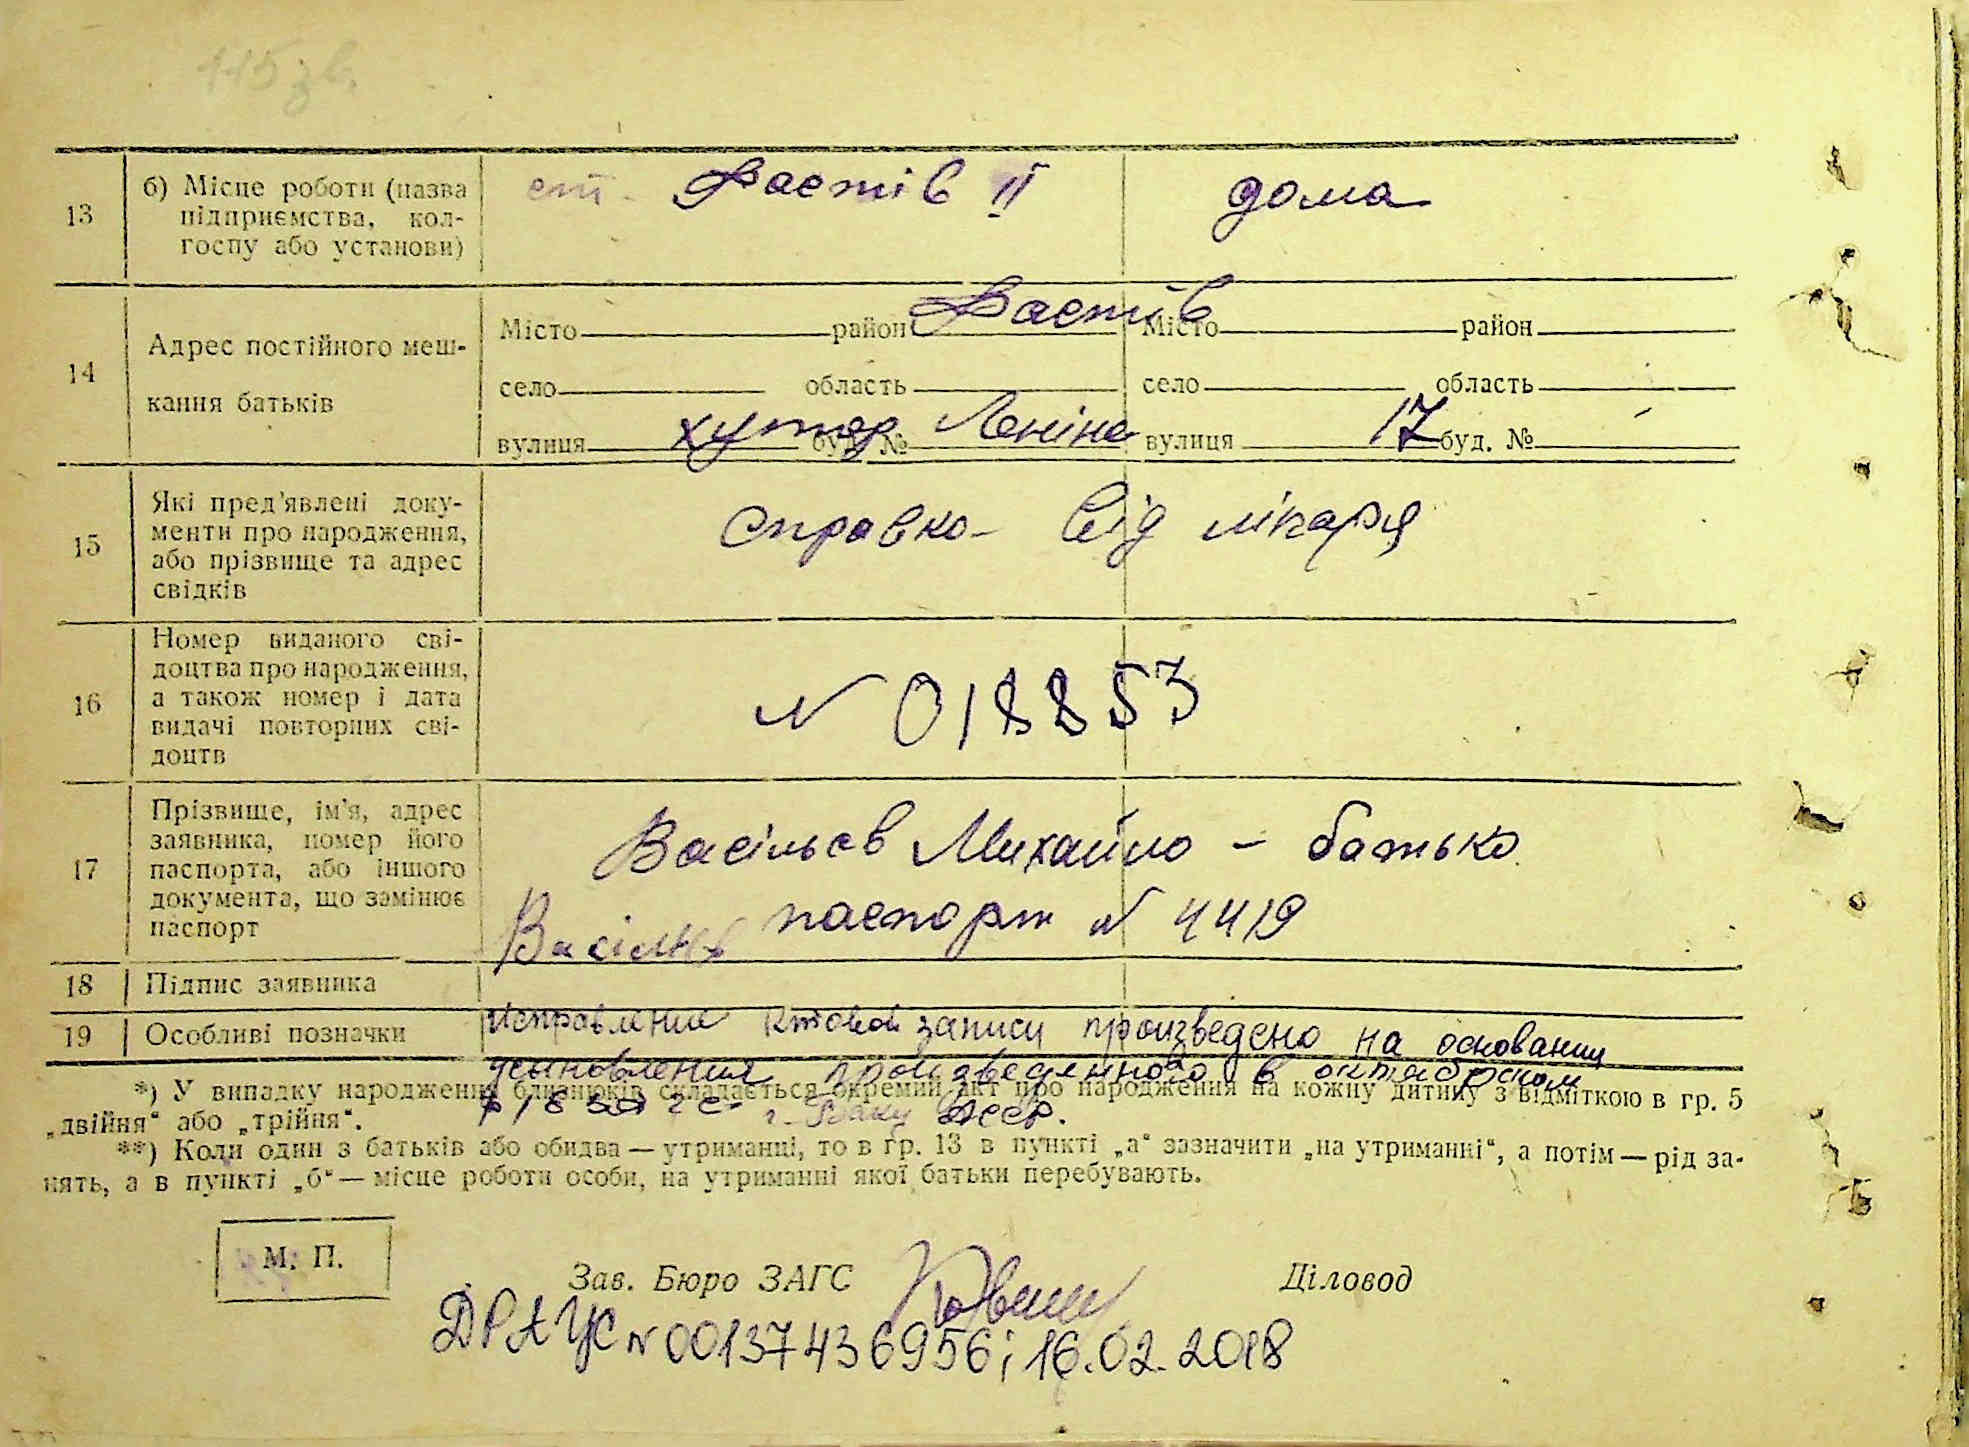 115 зв.
13
б) Місце роботи (назва
підприємства, кол-
госпу або установи)
ст. Фастів II
дома
14
Адрес постійного меш-
кання батьків
Місто район Фастів Місто район
село область село область
вулиця хутор буд. № Леніна вулиця 17 буд. №
15
Які пред'явлені доку-
менти про народження,
або прізвище та адрес
свідків
справка від лікаря
16
Номер виданого сві-
доцтва про народження,
а також номер і дата
видачі повторних сві-
доцтв
N 018853
17
Прізвище, ім'я, адрес
заявника, номер його
паспорта, або іншого
документа, що замінює
паспорт
Васільєв Михайло – батько
паспорт N 4419
Васільєв
18 Підпис заявника
19 Особливі позначки
Исправление актовой записи произведено на основании
усыновления произведенного в октябрьском
г. Баку АССР.
*) У випадку народження близнюків складається окремий акт про народження на кожну дитину з відміткою в гр. 5
„двійня“ або „трійня“.
**) Коли один з батьків або обидва — утриманці, то в гр. 13 в пункті „а“ зазначити „на утриманні“, а потім — рід за-
нять, а в пункті „б“ — місце роботи особи, на утриманні якої батьки перебувають.
М. П.
Зав. Бюро ЗАГС
Діловод
ДРАЦС N 00137436956; 16.02.2018